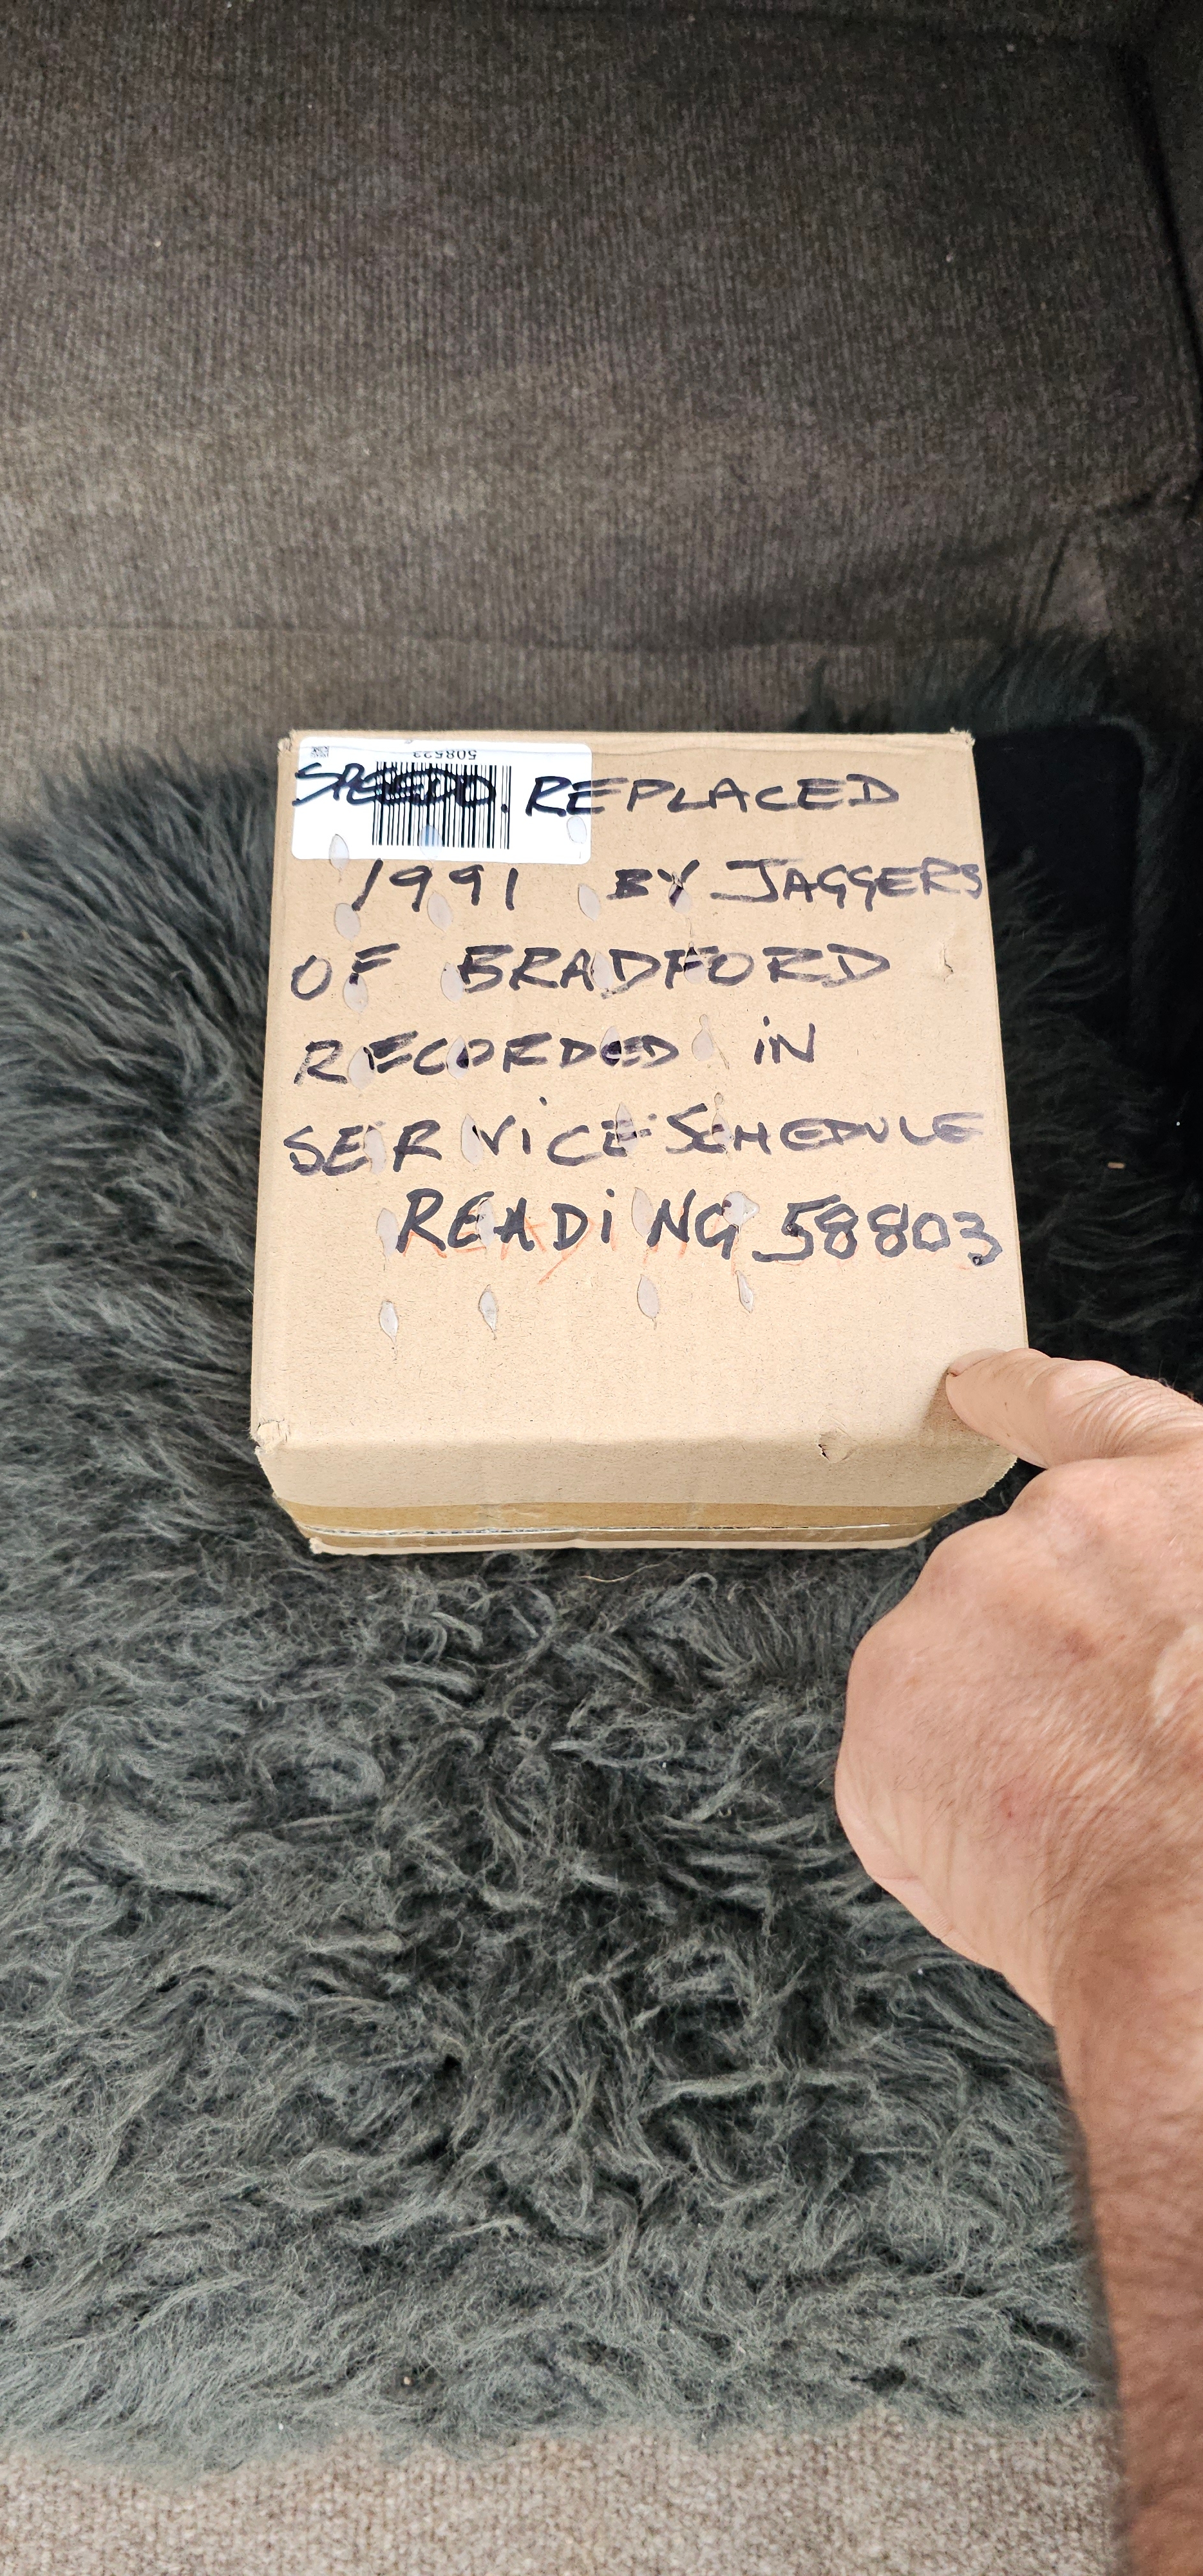 508523
SPEEDO. REPLACED
1991 BY JAGGERS
OF BRADFORD
RECORDED IN
SERVICE SCHEDULE
READING 58803